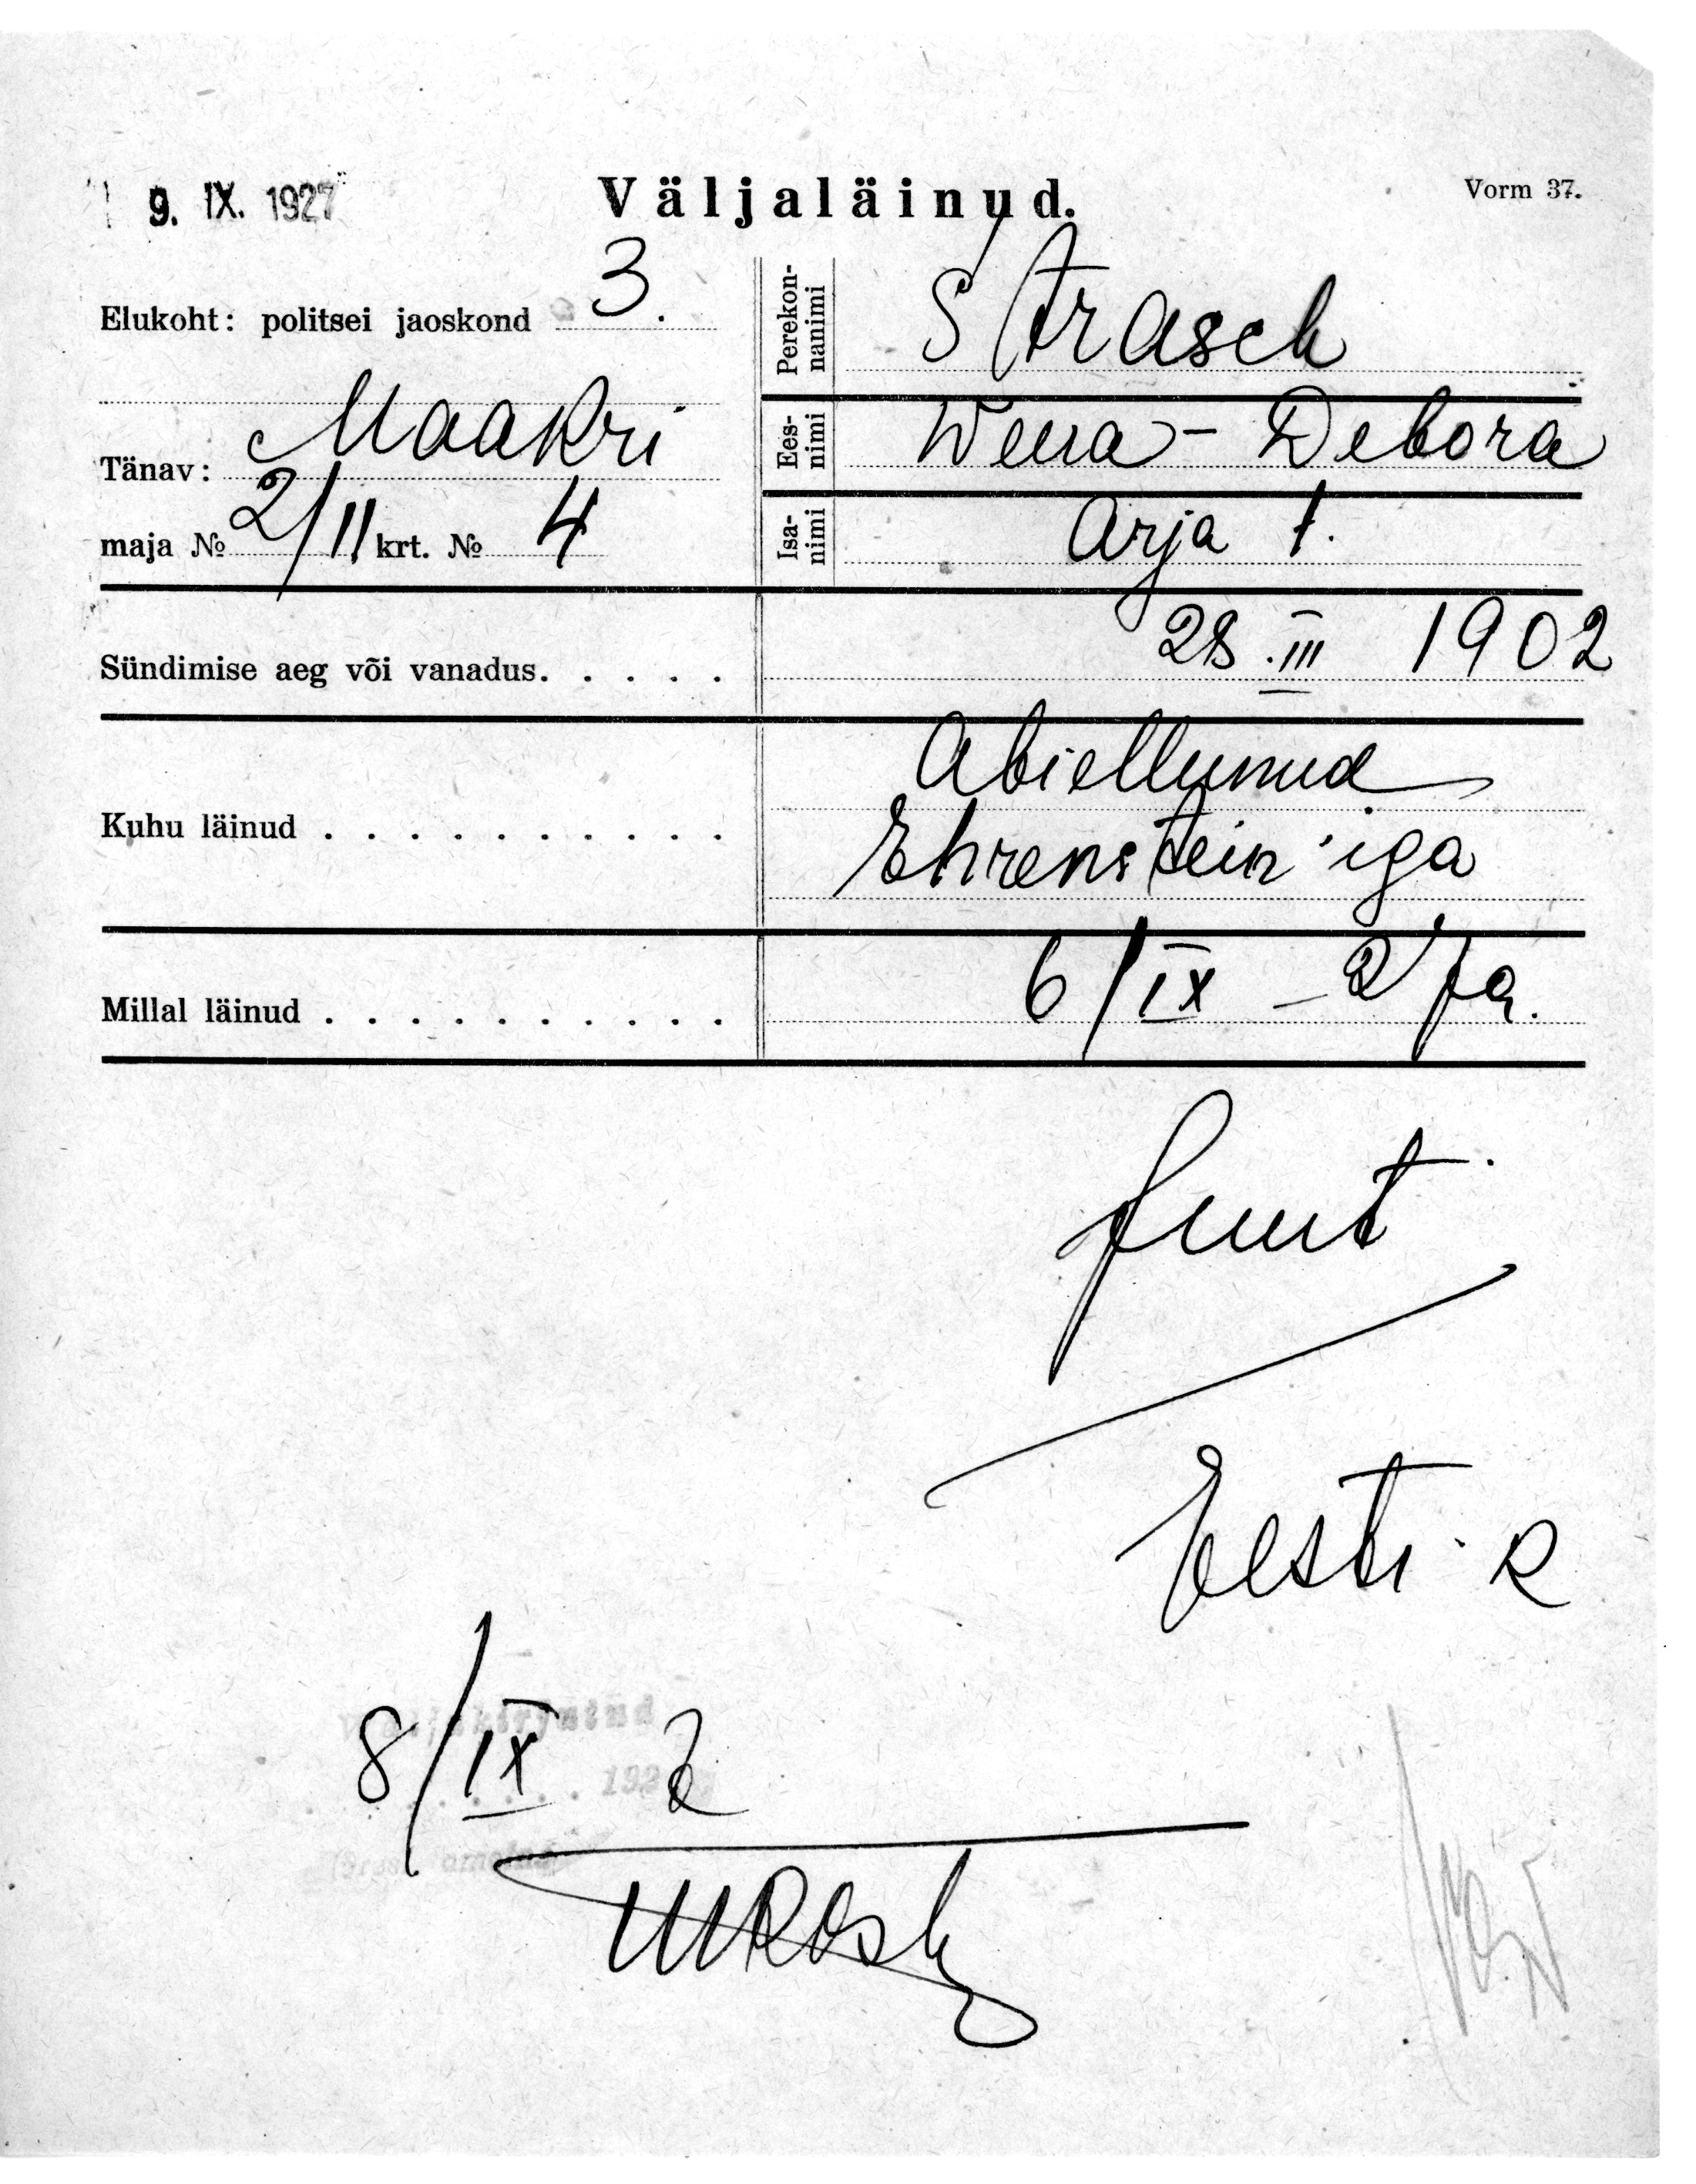 9. IX. 1927
Väljaläinud.
Vorm 37.
Elukoht: politsei jaoskond 3.
Tänav: Maakri
maja № 2/11 krt. № 4
Perekon-
nanimi
Strasch
Ees-
nimi
Wera - Debora
Isa-
nimi
Arja t.
Sündimise aeg või vanadus. . . . . 28.III 1902
Kuhu läinud . . . . . . . . . . Abiellunud
Ehrenstein'iga
Millal läinud . . . . . . . . . . 6/IX - 27 a.
Juut
Eesti R
8/IX 2